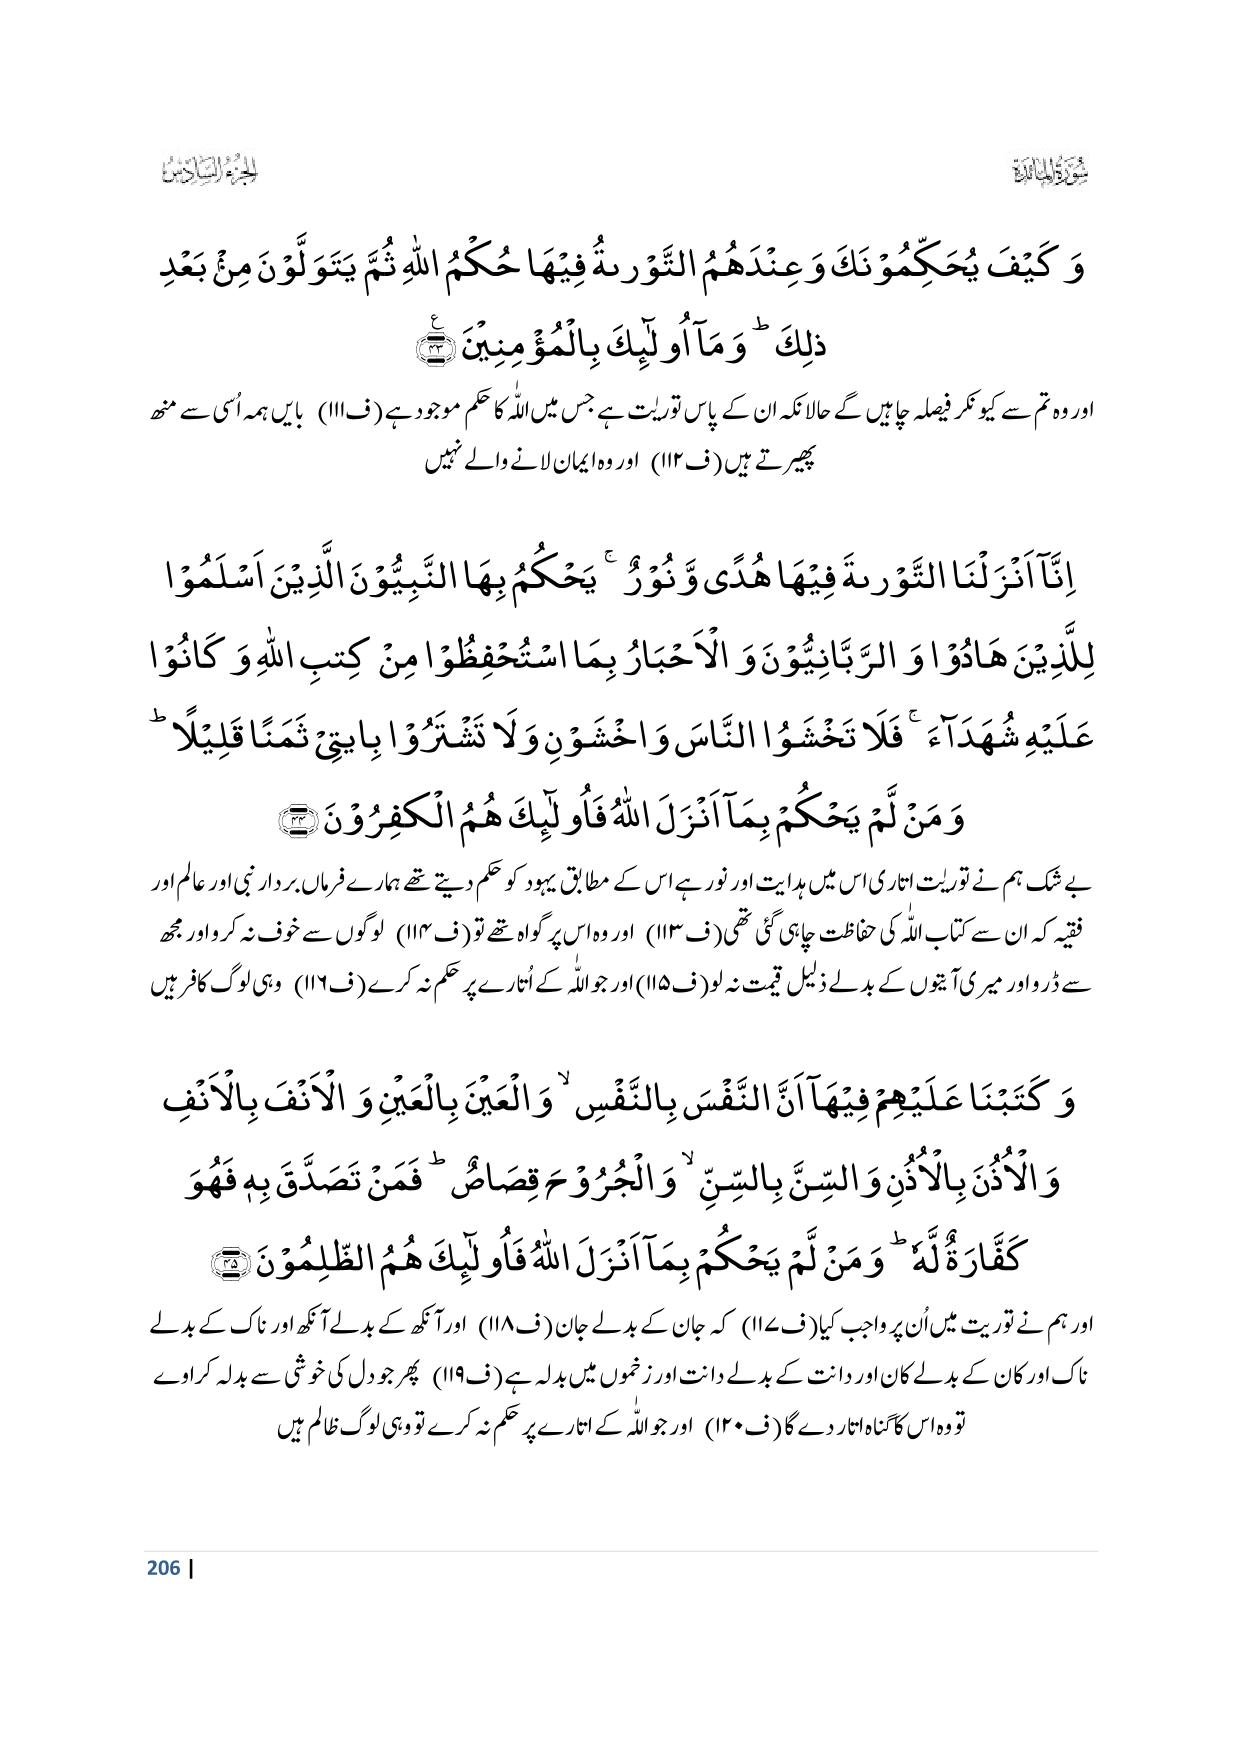 سُوْرَةُ الْمَائِدَة
الجزء السادس
وَ كَیْفَ یُحَكِّمُوْنَكَ وَ عِنْدَهُمُ التَّوْرٰىةُ فِیْهَا حُكْمُ اللّٰهِ ثُمَّ یَتَوَلَّوْنَ مِنْۢ بَعْدِ
ذٰلِكَ ؕ وَ مَاۤ اُولٰٓىٕكَ بِالْمُؤْمِنِیْنَ ﴿۴۳﴾ ع
اور وہ تم سے کیونکر فیصلہ چاہیں گے حالانکہ ان کے پاس توریٰت ہے جس میں اللّٰہ کا حکم موجود ہے (ف۱۱۱) بایں ہمہ اُسی سے منھ
پھیرتے ہیں (ف۱۱۲) اور وہ ایمان لانے والے نہیں
اِنَّاۤ اَنْزَلْنَا التَّوْرٰىةَ فِیْهَا هُدًی وَّ نُوْرٌ ۚ یَحْكُمُ بِهَا النَّبِیُّوْنَ الَّذِیْنَ اَسْلَمُوْا
لِلَّذِیْنَ هَادُوْا وَ الرَّبّٰنِیُّوْنَ وَ الْاَحْبَارُ بِمَا اسْتُحْفِظُوْا مِنْ كِتٰبِ اللّٰهِ وَ كَانُوْا
عَلَیْهِ شُهَدَآءَ ۚ فَلَا تَخْشَوُا النَّاسَ وَ اخْشَوْنِ وَ لَا تَشْتَرُوْا بِاٰیٰتِیْ ثَمَنًا قَلِیْلًا ؕ
وَ مَنْ لَّمْ یَحْكُمْ بِمَاۤ اَنْزَلَ اللّٰهُ فَاُولٰٓىٕكَ هُمُ الْكٰفِرُوْنَ ﴿۴۴﴾
بے شک ہم نے توریٰت اتاری اس میں ہدایت اور نور ہے اس کے مطابق یہود کو حکم دیتے تھے ہمارے فرماں بردار نبی اور عالم اور
فقیہ کہ ان سے کتاب اللّٰہ کی حفاظت چاہی گئی تھی (ف۱۱۳) اور وہ اس پر گواہ تھے تو (ف۱۱۴) لوگوں سے خوف نہ کرو اور مجھ
سے ڈرو اور میری آیتوں کے بدلے ذلیل قیمت نہ لو (ف۱۱۵) اور جو اللّٰہ کے اُتارے پر حکم نہ کرے (ف۱۱۶) وہی لوگ کافر ہیں
وَ كَتَبْنَا عَلَیْهِمْ فِیْهَاۤ اَنَّ النَّفْسَ بِالنَّفْسِ ۙ وَ الْعَیْنَ بِالْعَیْنِ وَ الْاَنْفَ بِالْاَنْفِ
وَ الْاُذُنَ بِالْاُذُنِ وَ السِّنَّ بِالسِّنِّ ۙ وَ الْجُرُوْحَ قِصَاصٌ ؕ فَمَنْ تَصَدَّقَ بِهٖ فَهُوَ
كَفَّارَةٌ لَّهٗ ؕ وَ مَنْ لَّمْ یَحْكُمْ بِمَاۤ اَنْزَلَ اللّٰهُ فَاُولٰٓىٕكَ هُمُ الظّٰلِمُوْنَ ﴿۴۵﴾
اور ہم نے توریت میں اُن پر واجب کیا (ف۱۱۷) کہ جان کے بدلے جان (ف۱۱۸) اور آنکھ کے بدلے آنکھ اور ناک کے بدلے
ناک اور کان کے بدلے کان اور دانت کے بدلے دانت اور زخموں میں بدلہ ہے (ف۱۱۹) پھر جو دل کی خوشی سے بدلہ کراوے
تو وہ اس کا گناہ اتار دے گا (ف۱۲۰) اور جو اللّٰہ کے اتارے پر حکم نہ کرے تو وہی لوگ ظالم ہیں
206 |